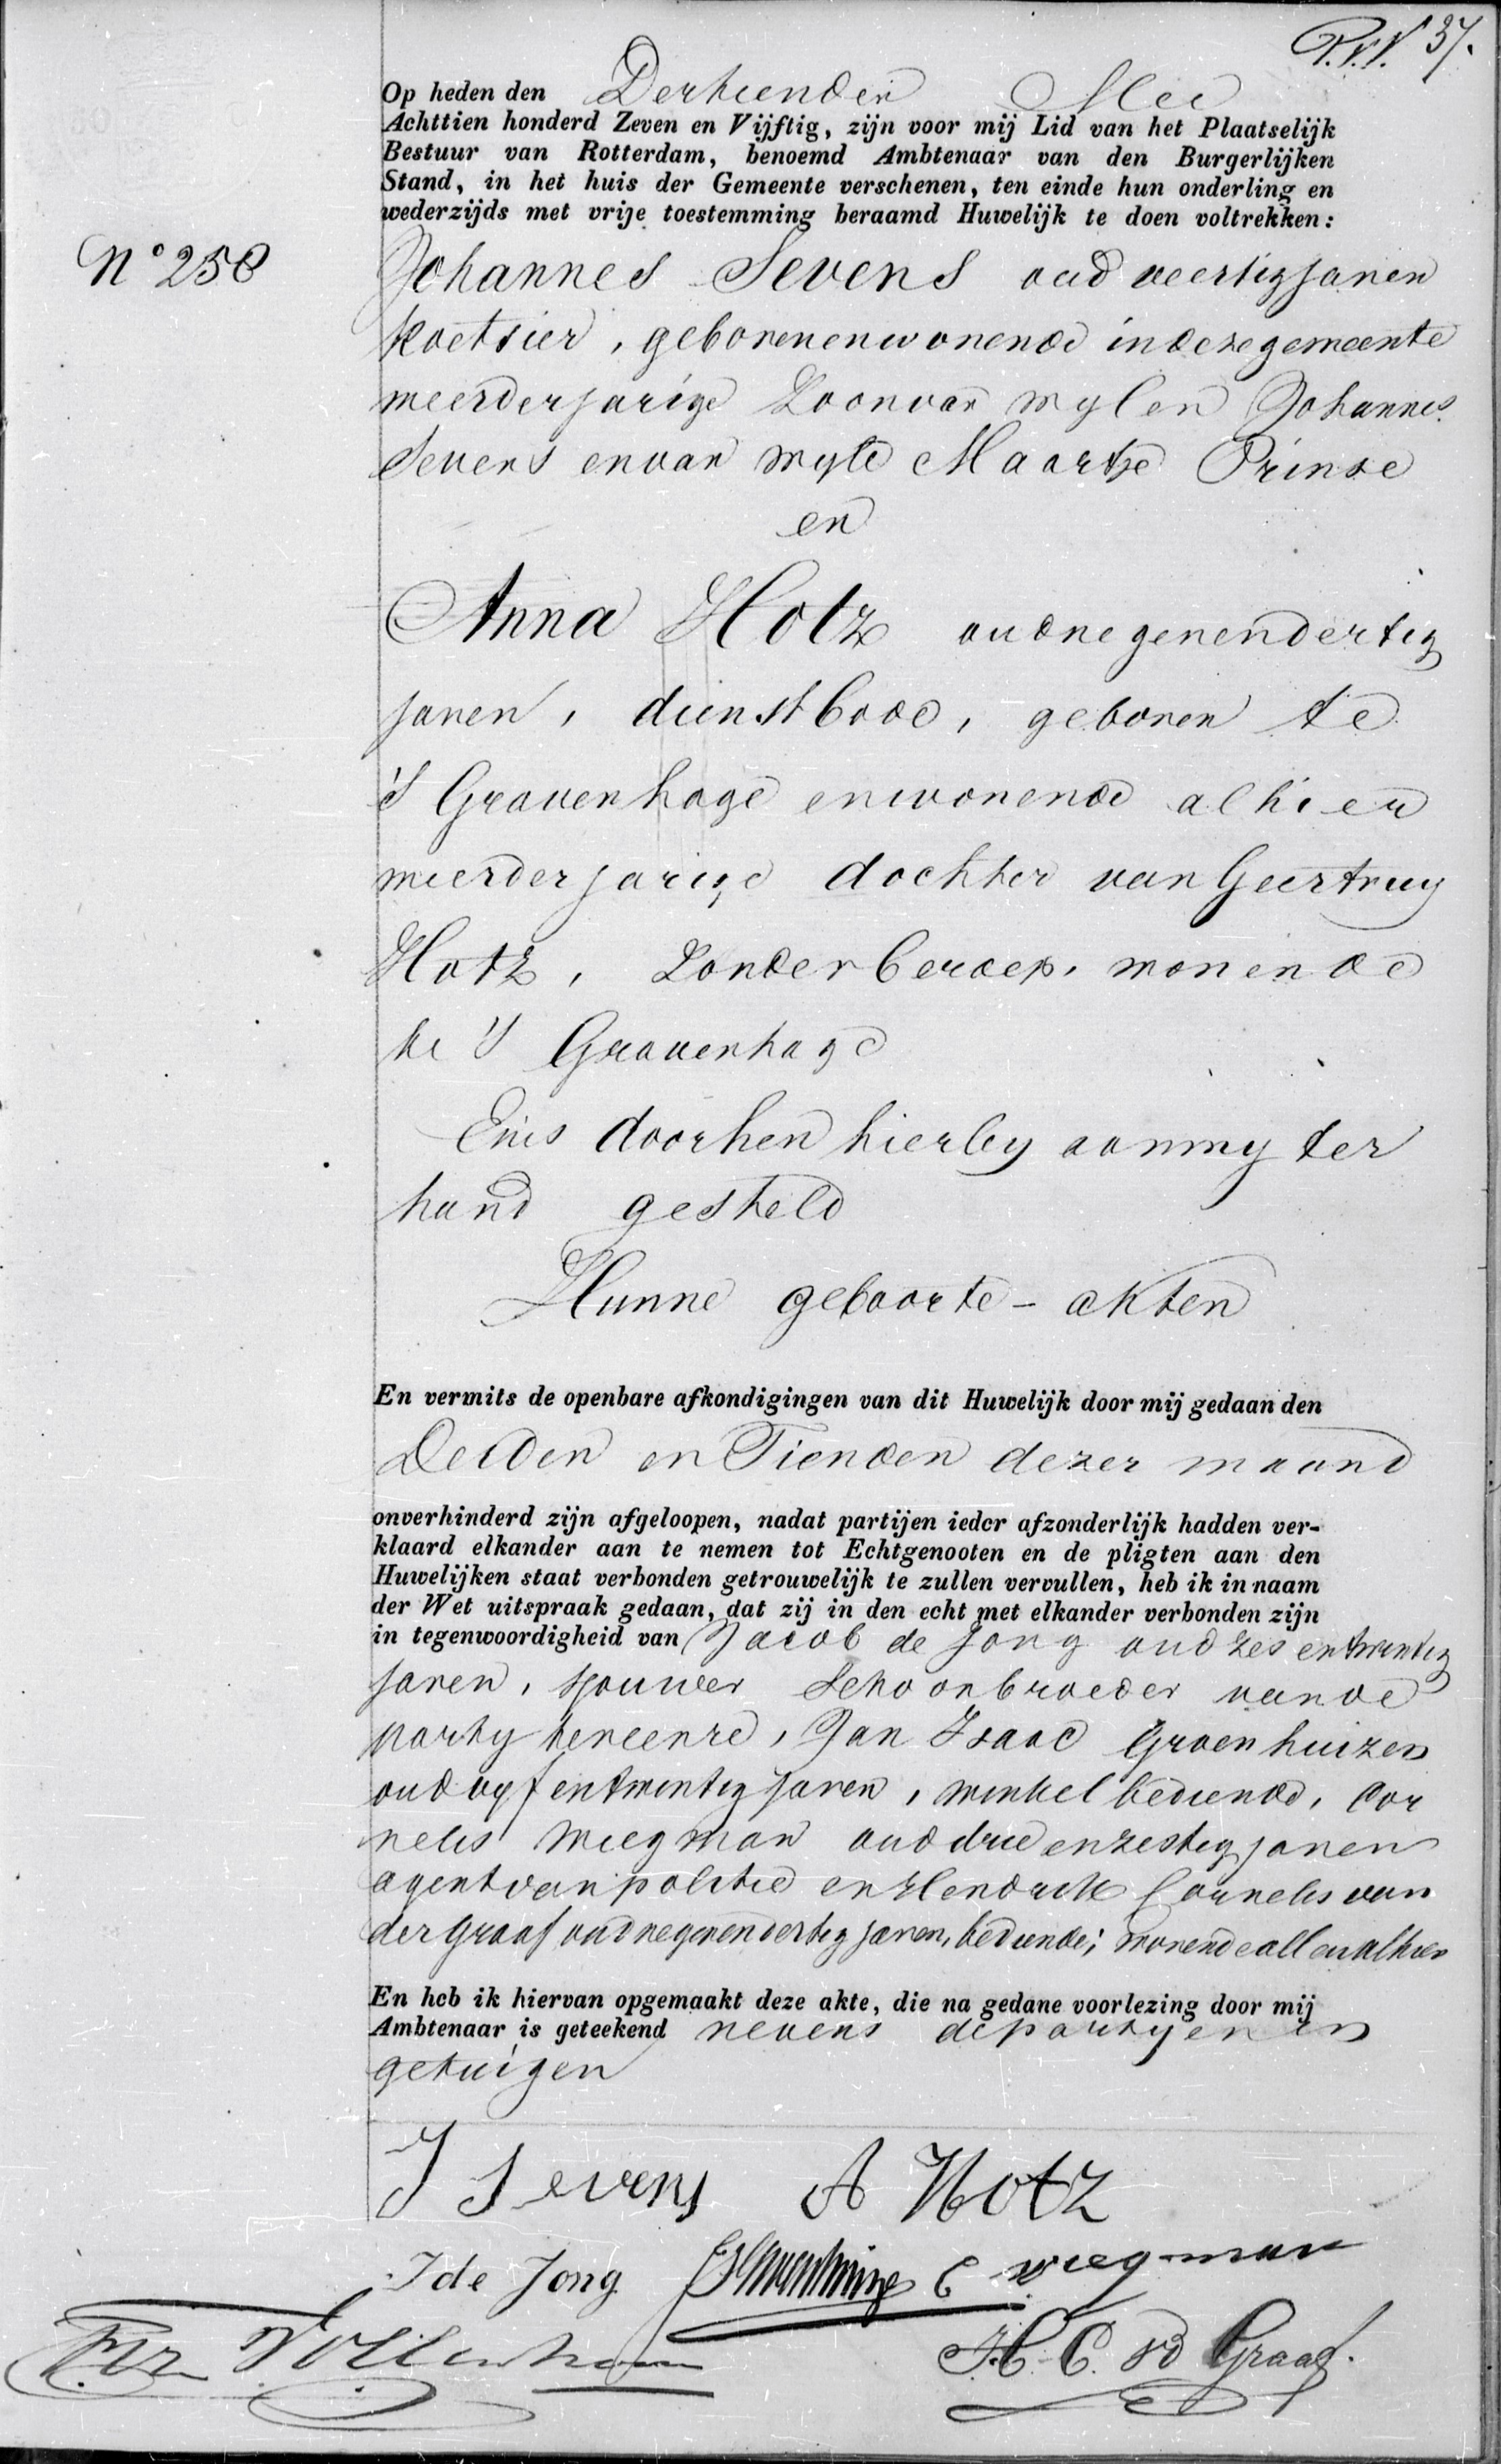 37.
Op heden den Dertienden Mei
Achttien honderd Zeven en Vijftig, zijn voor mij Lid van het Plaatselijk
Bestuur van Rotterdam, benoemd Ambtenaar van den Burgerlijken
Stand, in het huis der Gemeente verschenen, ten einde hun onderling en
wederzijds met vrije toestemming beraamd Huwelijk te doen voltrekken:
No 258
Johannes Sevens oud veertig jaren
koetsier, geboren en wonende in deze gemeente
meerderjarige Zoon van wylen Johannes
Sevens en van wyle Maartje Prinse
en
Anna Hotz oud negenendertig
jaren, dienstbode, geboren te
's Gravenhage en wonende alhier
meerderjarige dochter van Geertruy
Hotz, Zonder beroep, wonende
te 's Gravenhage
Eins door hen hierby aan my ter
hand gesteld
Hunne geboorte-akten
En vermits de openbare afkondigingen van dit Huwelijk door mij gedaan den
Derden en Tienden dezer maand
onverhinderd zijn afgeloopen, nadat partijen ieder afzonderlijk hadden ver-
klaard elkander aan te nemen tot Echtgenooten en de pligten aan den
Huwelijken staat verbonden getrouwelijk te zullen vervullen, heb ik in naam
der Wet uitspraak gedaan, dat zij in den echt met elkander verbonden zijn
in tegenwoordigheid van Jacob de Jong oud zes en twintig
jaren, sjouwer Schoonbroeder van de
party ten eenre, Jan Isaac Groenhuizen
oud vyf en twintig jaren, winkelbediende, Cor
nelis Wiegman oud drie en zestig jaren
agent van politie en Hendrik Cornelis van
der Graaf oud negenendertig jaren, bediende; wonende allen alhier
En heb ik hiervan opgemaakt deze akte, die na gedane voorlezing door mij
Ambtenaar is geteekend nevens de partyen en
getuigen
J Sevens A Hotz
J de Jong C wiegman
H. C. vd Graaf.